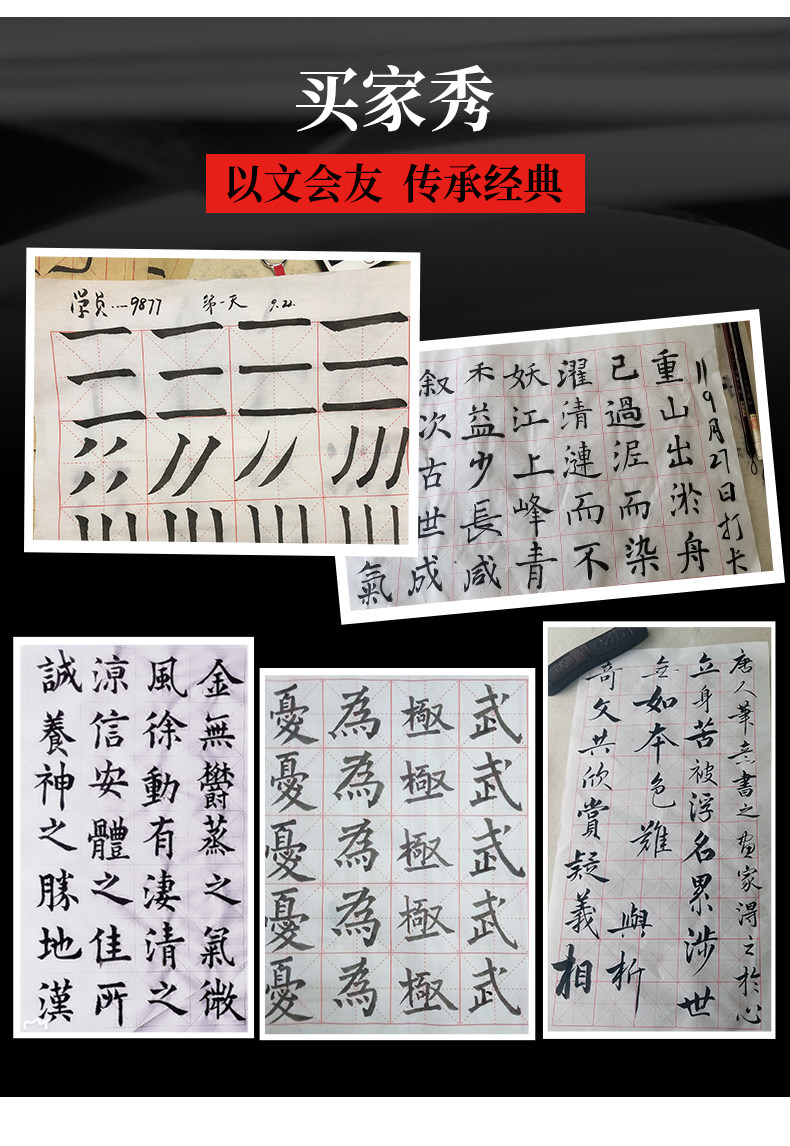 买家秀
以文会友 传承经典
学员....9877 第一天 9.22.
11月27日打卡
重山出淤舟
己過泥而染
濯清漣而不
妖江上峰青
禾益少長咸
叙次古世成
氣
金無鬱蒸之氣微
風徐動有淒清之
涼信安體之佳所
誠養神之勝地漢
武武武武武
極極極極極
為為為為為
憂憂憂憂憂
唐人筆意書之畫家得之於心
立身苦被浮名累涉世
無如本色難
與析
奇文共欣賞疑義相